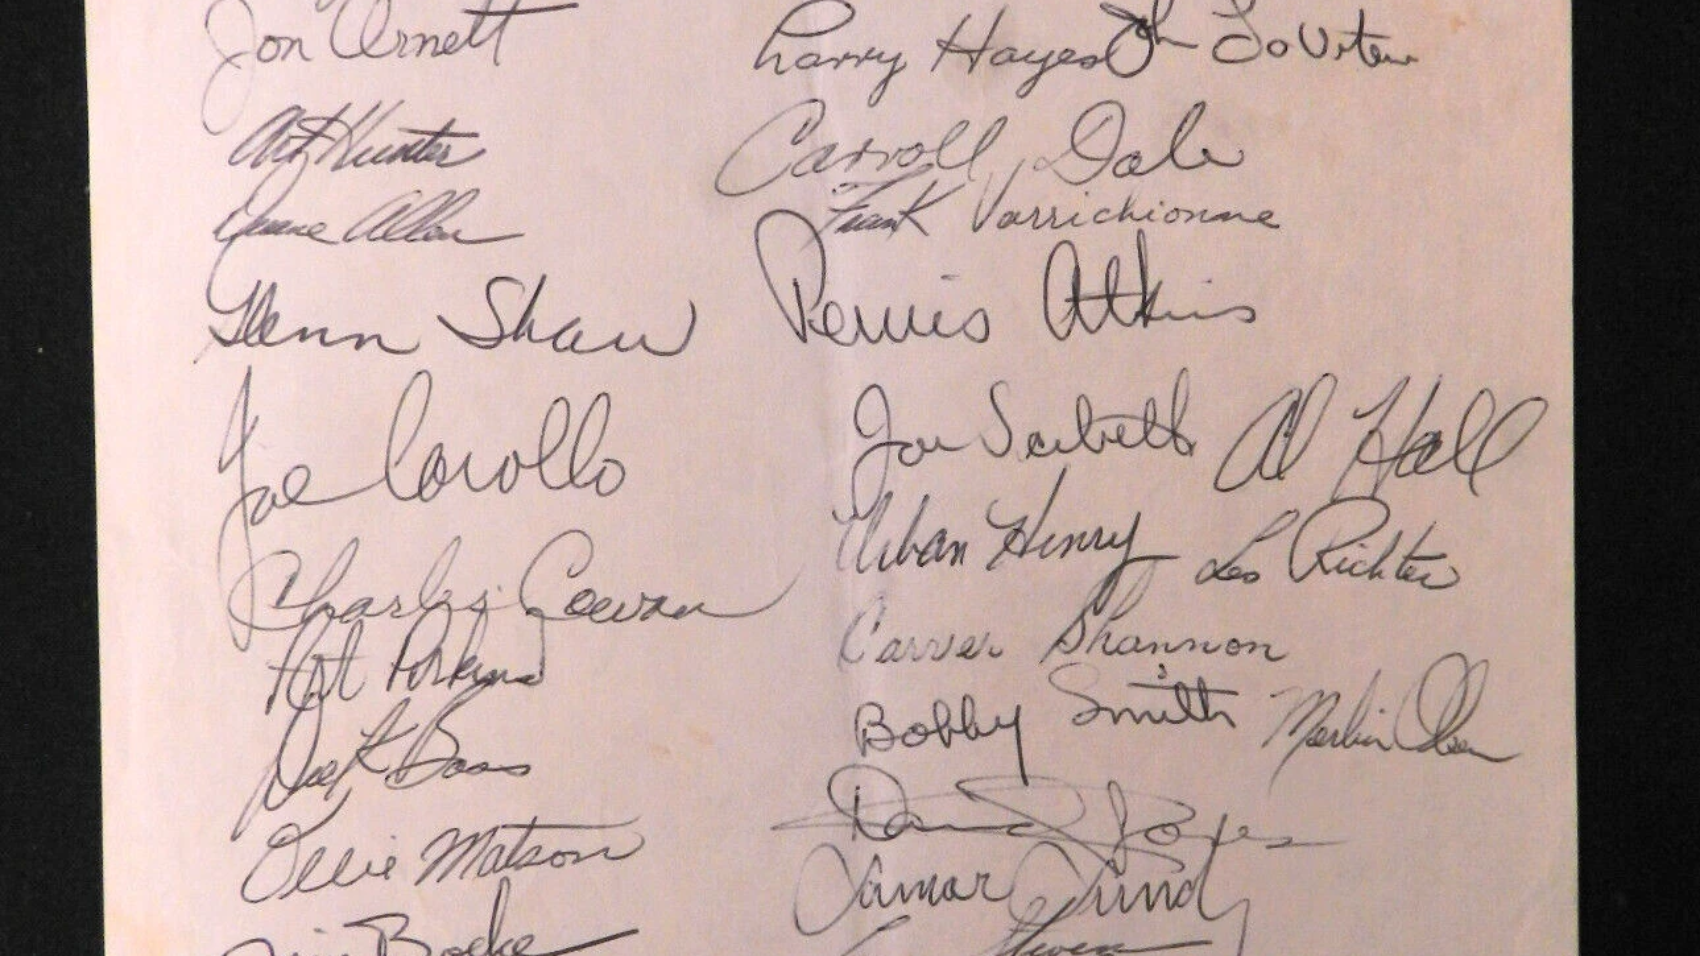 Jon Arnett
Larry Hayes John LoVetere
Art Hunter
Carroll Dale
Duane Allen
Frank Varrichionne
Glenn Shaw
Pervis Atkins
Joe Carollo
Joe Scibelli Al Hall
Charley Cowan
Urban Henry Les Richter
Art Perkins
Carver Shannon
Dick Bass
Bobby Smith Merlin Olsen
Ollie Matson
David Jones
Lamar Lundy
Jim Boeke